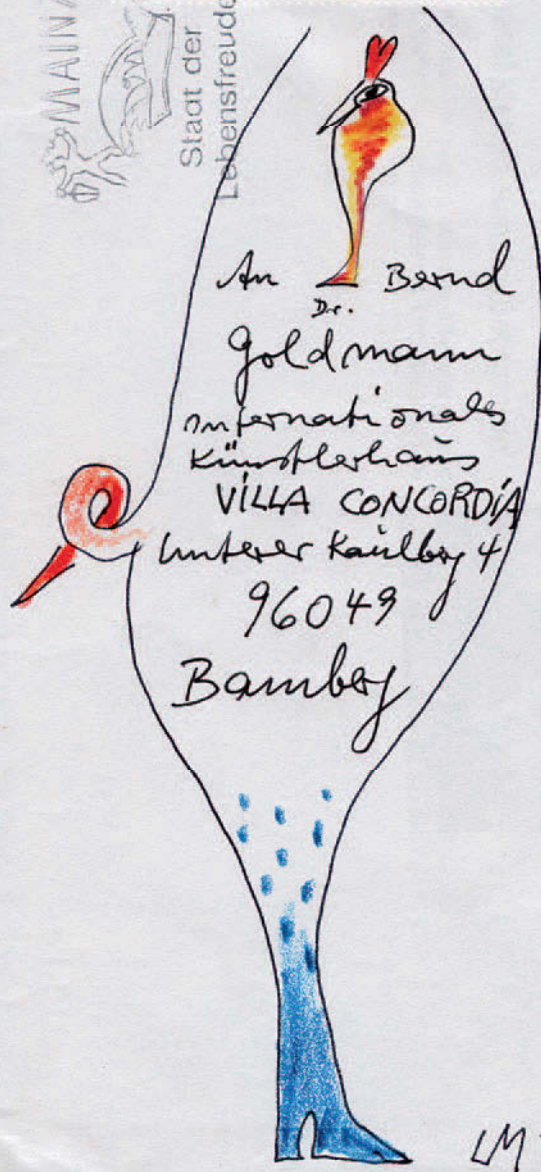 MAINZ
Stadt der
Lebensfreude
An Bernd
Dr.
Goldmann
internationales
Künstlerhaus
VILLA CONCORDIA
Unterer Kaulberg 4
96049
Bamberg
LM